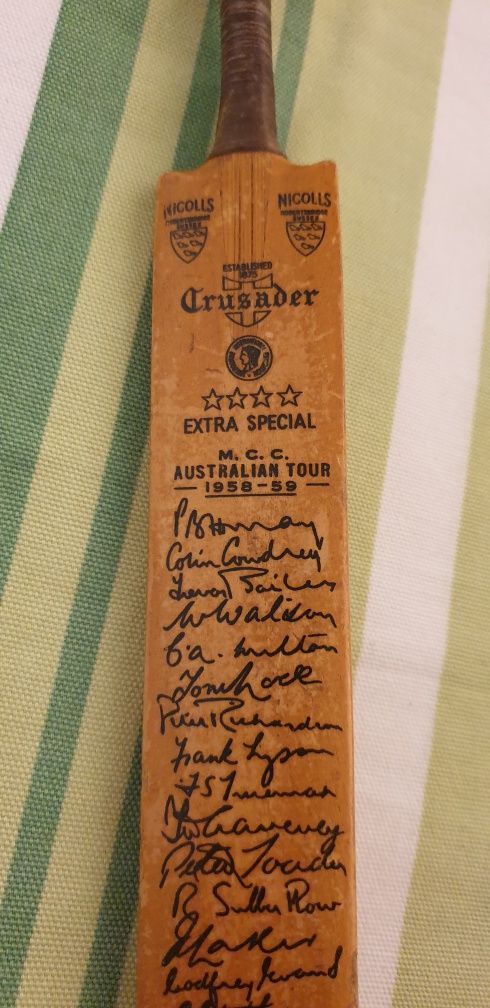 NICOLLS NICOLLS
ROBERTSBRIDGE ROBERTSBRIDGE
SUSSEX SUSSEX
ESTABLISHED
1875
Crusader
EXTRA SPECIAL
M. C. C.
AUSTRALIAN TOUR
1958-59
P B H May
Colin Cowdrey
Trevor Bailey
W Watson
C. A. Milton
Tony Lock
Peter Richardson
Frank Tyson
F S Trueman
T W Graveney
Peter Loader
R Subba Row
J C Laker
Godfrey Evans